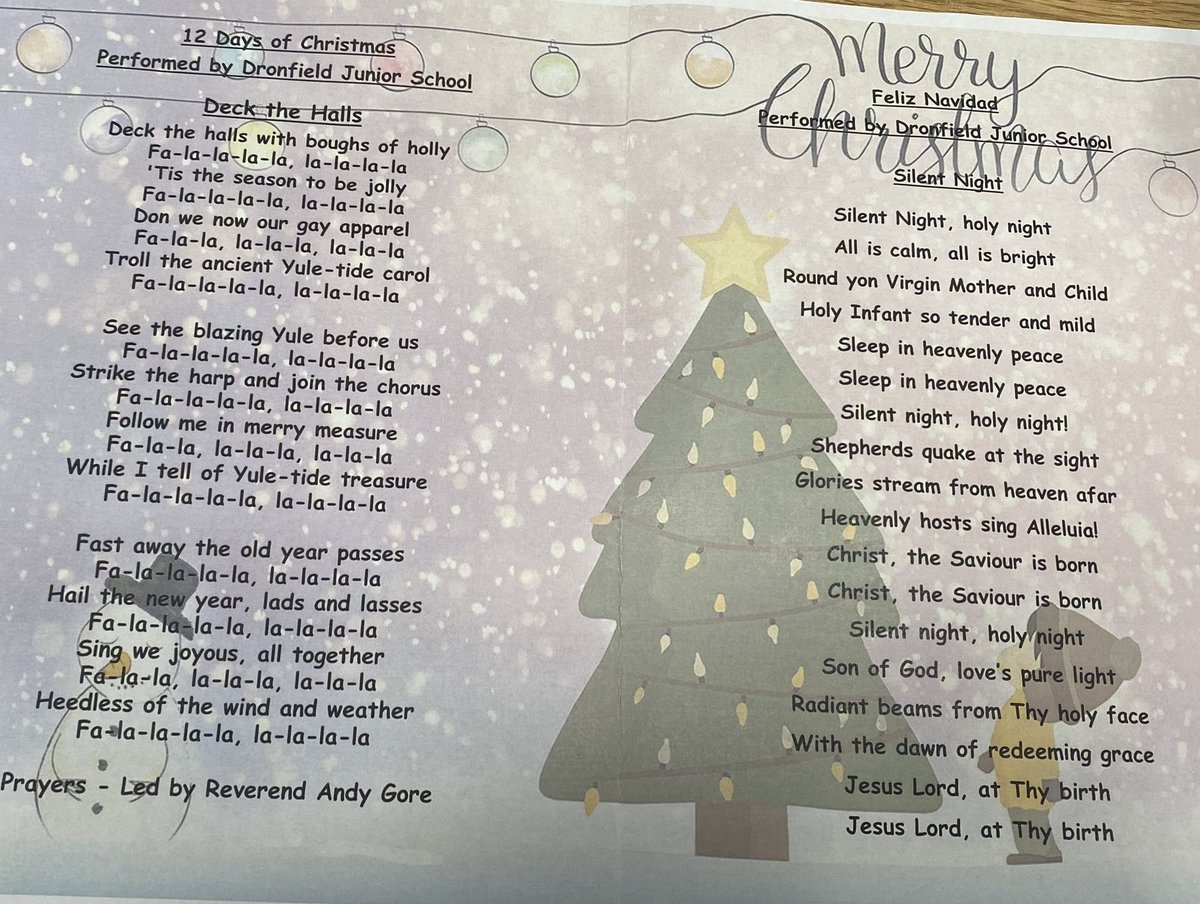 12 Days of Christmas
Performed by Dronfield Junior School
Deck the Halls
Deck the halls with boughs of holly
Fa-la-la-la-la, la-la-la-la
'Tis the season to be jolly
Fa-la-la-la-la, la-la-la-la
Don we now our gay apparel
Fa-la-la, la-la-la, la-la-la
Troll the ancient Yule-tide carol
Fa-la-la-la-la, la-la-la-la
See the blazing Yule before us
Fa-la-la-la-la, la-la-la-la
Strike the harp and join the chorus
Fa-la-la-la-la, la-la-la-la
Follow me in merry measure
Fa-la-la, la-la-la, la-la-la
While I tell of Yule-tide treasure
Fa-la-la-la-la, la-la-la-la
Fast away the old year passes
Fa-la-la-la-la, la-la-la-la
Hail the new year, lads and lasses
Fa-la-la-la-la, la-la-la-la
Sing we joyous, all together
Fa-la-la, la-la-la, la-la-la
Heedless of the wind and weather
Fa-la-la-la-la, la-la-la-la
Prayers - Led by Reverend Andy Gore
Merry
Christmas
Feliz Navidad
Performed by Dronfield Junior School
Silent Night
Silent Night, holy night
All is calm, all is bright
Round yon Virgin Mother and Child
Holy Infant so tender and mild
Sleep in heavenly peace
Sleep in heavenly peace
Silent night, holy night!
Shepherds quake at the sight
Glories stream from heaven afar
Heavenly hosts sing Alleluia!
Christ, the Saviour is born
Christ, the Saviour is born
Silent night, holy night
Son of God, love's pure light
Radiant beams from Thy holy face
With the dawn of redeeming grace
Jesus Lord, at Thy birth
Jesus Lord, at Thy birth